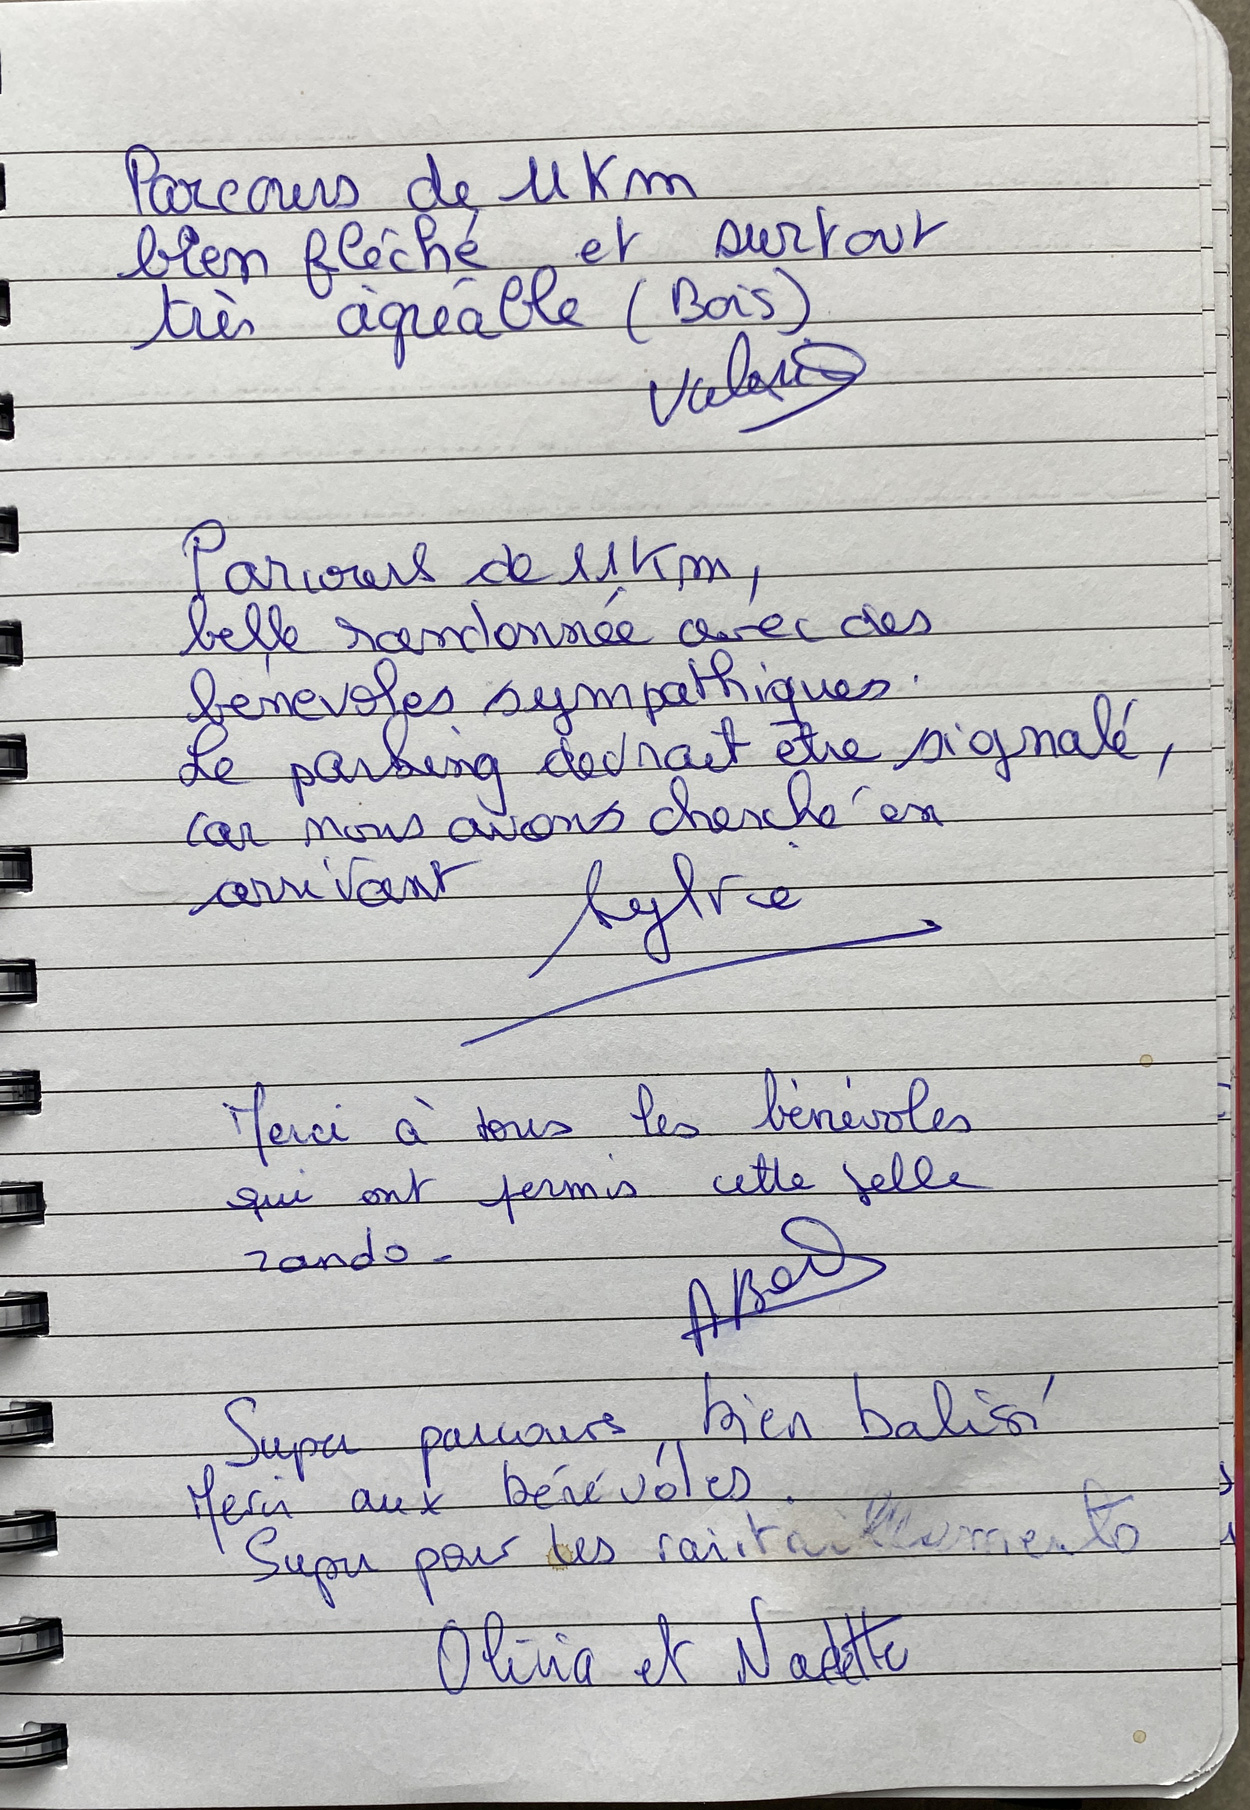 Parcours de 11 Km
bien fléché et surtout
très agréable (Bois)
Valérie
Parcours de 11 Km,
belle randonnée avec des
bénévoles sympathiques.
Le parking devrait être signalé,
car nous avons cherché en
arrivant Sylvie
Merci à tous les bénévoles
qui ont permis cette belle
rando -
Super parcours, bien balisé
Merci aux bénévoles.
Super pour les
Olivia et Nadette